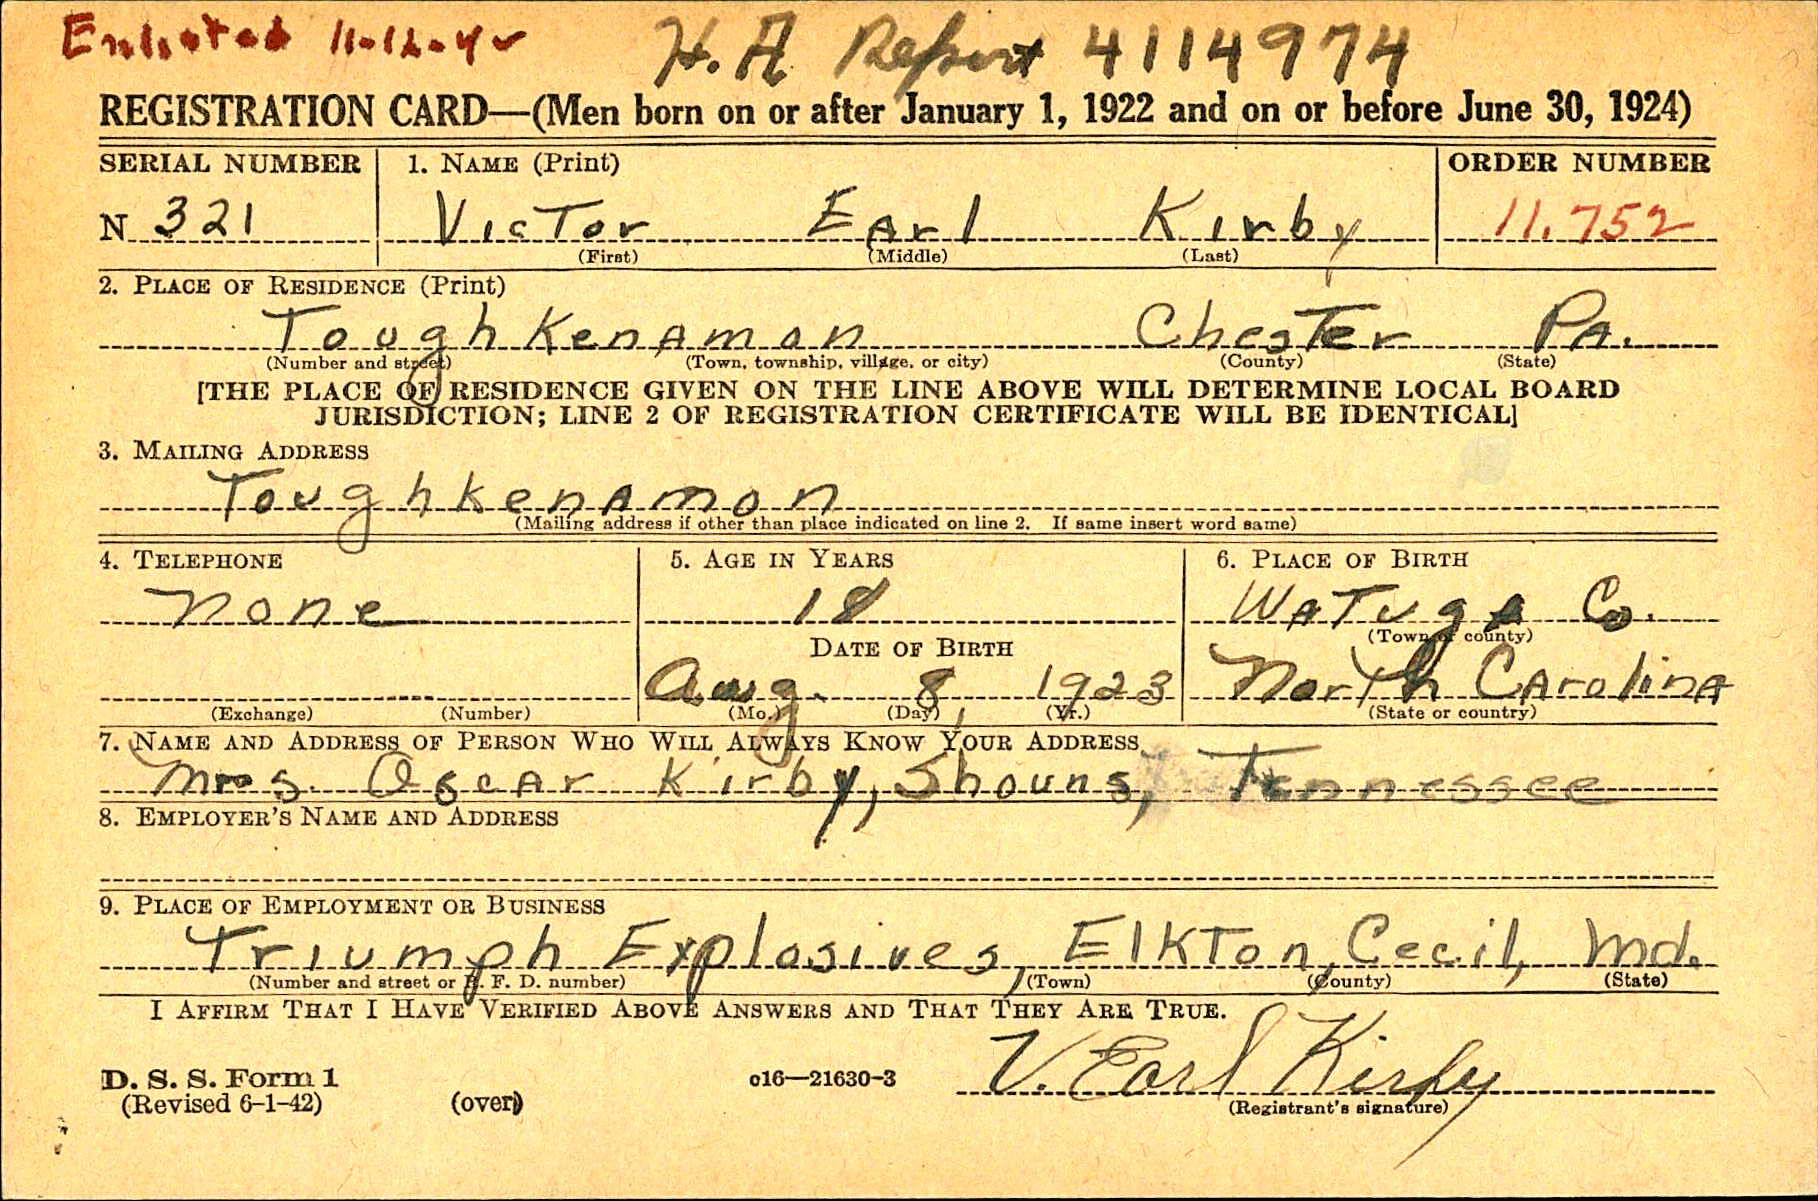 Enlisted 11-12-42 H. A Report 4114974
REGISTRATION CARD—(Men born on or after January 1, 1922 and on or before June 30, 1924)
SERIAL NUMBER 1. NAME (Print) ORDER NUMBER
N 321 Victor Earl Kirby 11,752
(First) (Middle) (Last)
2. PLACE OF RESIDENCE (Print)
Toughkenamon Chester Pa.
(Number and street) (Town, township, village, or city) (County) (State)
[THE PLACE OF RESIDENCE GIVEN ON THE LINE ABOVE WILL DETERMINE LOCAL BOARD
JURISDICTION; LINE 2 OF REGISTRATION CERTIFICATE WILL BE IDENTICAL]
3. MAILING ADDRESS
Toughkenamon
(Mailing address if other than place indicated on line 2. If same insert word same)
4. TELEPHONE 5. AGE IN YEARS 6. PLACE OF BIRTH
None 18 Watuga Co.
DATE OF BIRTH (Town or county)
Aug. 8, 1923 North Carolina
(Exchange) (Number) (Mo.) (Day) (Yr.) (State or country)
7. NAME AND ADDRESS OF PERSON WHO WILL ALWAYS KNOW YOUR ADDRESS
Mrs. Oscar Kirby, Shouns, Tennessee
8. EMPLOYER'S NAME AND ADDRESS
9. PLACE OF EMPLOYMENT OR BUSINESS
Triumph Explosives, Elkton, Cecil, Md.
(Number and street or R. F. D. number) (Town) (County) (State)
I AFFIRM THAT I HAVE VERIFIED ABOVE ANSWERS AND THAT THEY ARE TRUE.
D. S. S. Form 1 c16—21630-3 V. Earl Kirby
(Revised 6-1-42) (over) (Registrant's signature)